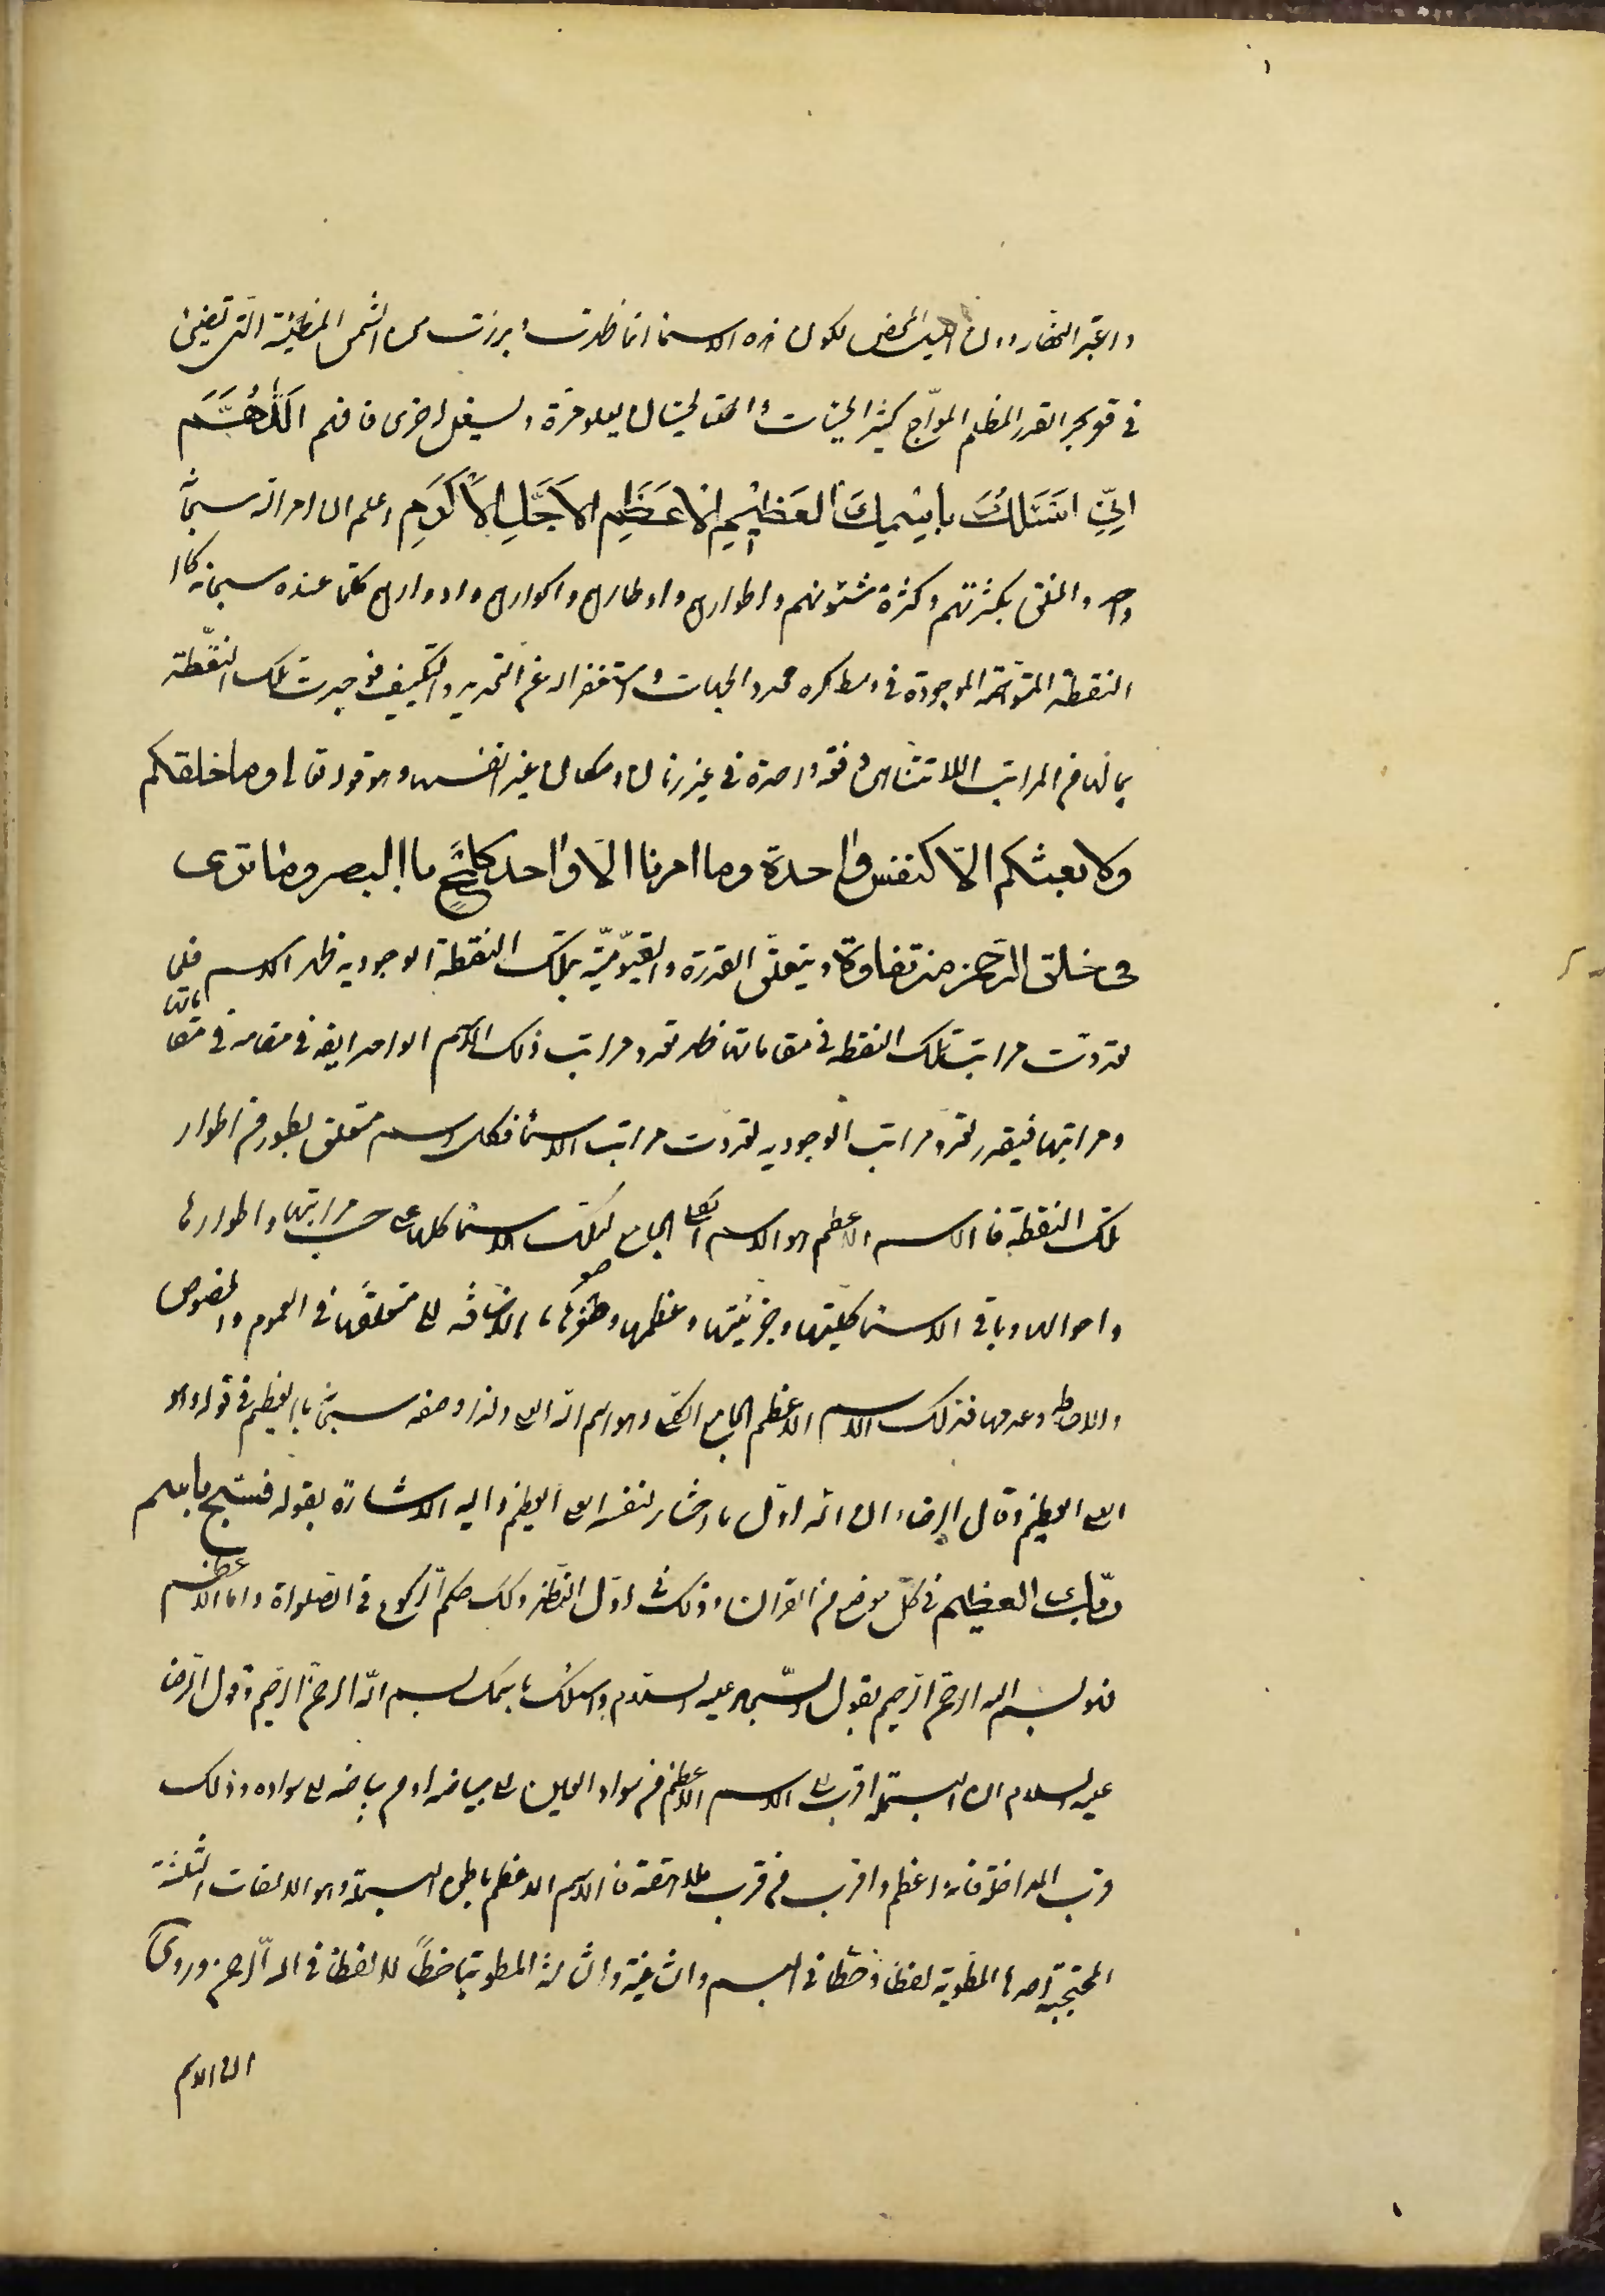 واعتبر القهار دون لكون هذه الاسماء انما ظهرت وبرزت من الشمس المضيئة التى تضيئ
فى قعر بحر القدر المظلم الموّاج كثير الحيات والحيتان يعلو مرّة ويسفل اخرى فافهم اَللّهُمَّ
اِنّي اَسْئَلُكَ بِاسْمِكَ الْعَظيمِ الْاَعْظَمِ الْاَجَلِّ الْاَكْرَمِ اعلم ان امر الله سبحانه
واحد والخلق بكثرتهم وكثرة شئونهم واطوارهم واوطارهم واكوارهم وادوارهم كلها عنده سبحانه كا
النقطة المتوهمة الموجودة فى وسط كره محدد الجهات واستغفر الله عن التحديد والتكييف فوجدت تلك النقطة
بما لها من المراتب اللا تتناهى دفعة واحدة فى غير زمان ومكان غير انفسها وهو قوله تعالى وما خلقكم
ولا بعثكم الّا كنفس واحدة وما امرنا الّا واحدة كلمح باالبصر وما ترى
فى خلق الرّحمن من تفاوت وبتعلّق القدرة والقيّوميّة بتلك النقطة الوجوديه ظهر الاسم فلما
تعددت مراتب تلك النقطه فى مقاماتها ظهر تعدد مراتب ذلك الاسم الواحد ايضا فى مقامه فى مقاماتها
ومراتبها فبقدر تعدد مراتب الوجوديه تعددت مراتب الاسماء فكل اسم متعلق بطور من اطوار
تلك النقطة فالاسم الاعظم هو الاسم الكلى الجامع لتلك الاسماء كلها على حسب مراتبها واطوارها
واحوالها وباقى الاسماء كليّتها وجزئيّتها وعظمها وصغرها بالاضافة الى متعلّقها فى العموم والخصوص
والاحاطه وعدمها فذلك الاسم الاعظم الجامع الكلى وهو اسم الله العلى ولذا وصفه سبحانه باالعظيم فى قوله وهو
العلى العظيم وقال الرضا ان الله اول ما اختار لنفسه العلى العظيم واليه الاشارة بقوله فسبّح باسم
ربّك العظيم فى كلّ موضع من القرآن وذلك فى اوّل النظر وكك حكم الركوع فى الصّلواة واما الاعظم
فهو بسم الله الرحمن الرّحيم بقول السّجاد عليه السّلام واسئلك باسمك بسم الله الرحمن الرّحيم وقول الرّضا
عليه السلام ان البسملة اقرب الى الاسم الاعظم من سواد العين الى بياضها او من بياضها الى سوادها وذلك
قرب المداخلة فانه اعظم واقرب من قرب الملاصقة فالاسم الاعظم باطن البسملة وهو الالفات الثلثة
المحتجبة احدها المطوية لفظا وخطا فى البسم والثانية والثالثة المطويتان خطاً لا لفظا فى الله الرّحمن وروى
ان الاسم